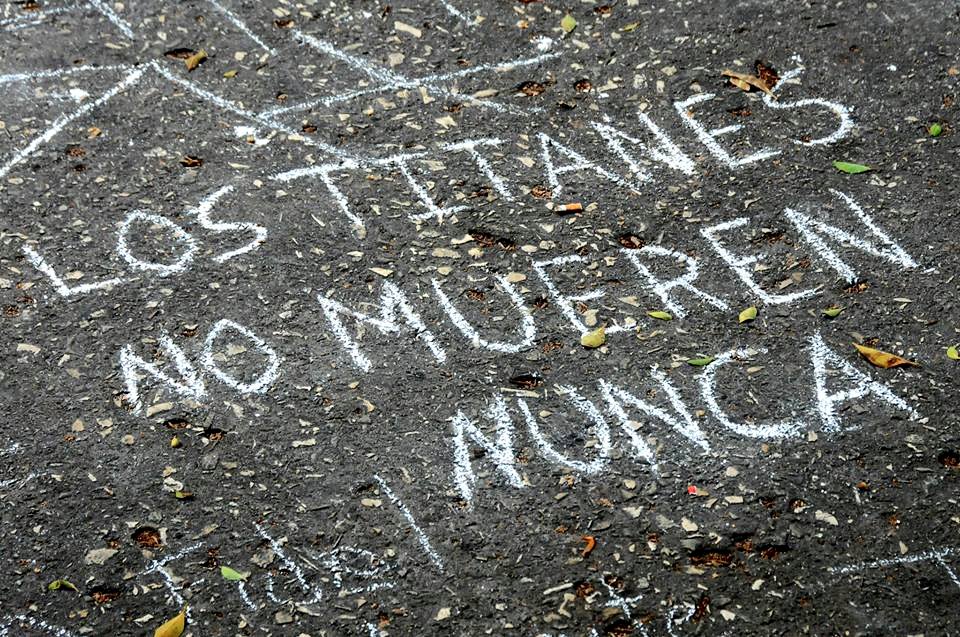 LOS TITANES
NO MUEREN
NUNCA